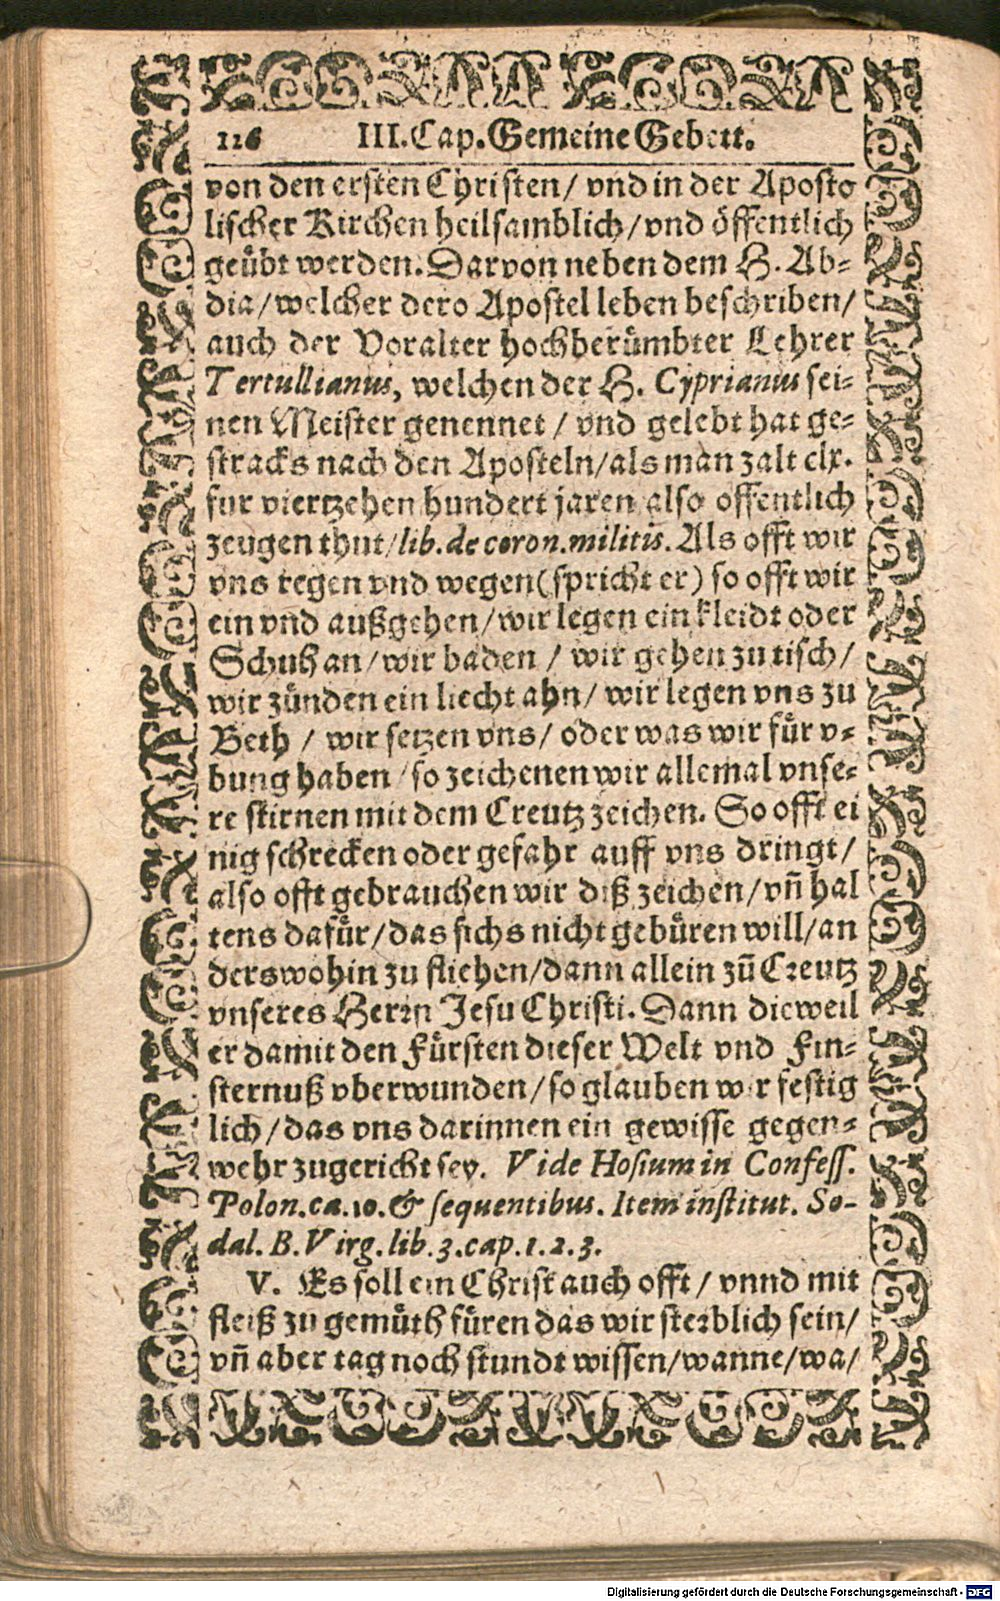 126 III. Cap. Gemeine Gebett.
von den ersten Christen/ vnd in der Aposto
lischer Kirchen heilsamblich/ vnd öffentlich
geübt werden. Darvon neben dem H. Ab=
dia/ welcher dero Apostel leben beschriben/
auch der Voralter hochberümbter Lehrer
Tertullianus, welchen der H. Cyprianus sei=
nen Meister genennet / vnd gelebt hat ge=
stracks nach den Aposteln/ als man zalt clx.
fur viertzehen hundert jaren also offentlich
zeugen thut/ lib. de coron. militis. Als offt wir
vns regen vnd wegen (spricht er) so offt wir
ein vnd außgehen/ wir legen ein kleidt oder
Schuh an/ wir baden / wir gehen zu tisch/
wir zünden ein liecht ahn/ wir legen vns zu
Beth / wir setzen vns/ oder was wir für v=
bung haben/ so zeichenen wir allemal vnse=
re stirnen mit dem Creutz zeichen. So offt ei
nig schrecken oder gefahr auff vns dringt/
also offt gebrauchen wir diß zeichen/ vñ hal
tens dafür/ das sichs nicht gebüren will/ an
derswohin zu fliehen/ dann allein zũ Creutz
vnseres Herrn Jesu Christi. Dann dieweil
er damit den Fürsten dieser Welt vnd Fin=
sternuß vberwunden/ so glauben wir festig
lich/ das vns darinnen ein gewisse gegen=
wehr zugericht sey. Vide Hosium in Confess.
Polon. ca. 10. & sequentibus. Item institut. So-
dal. B. Virg. lib. 3. cap. 1. 2. 3.
V. Es soll ein Christ auch offt/ vnnd mit
fleiß zu gemüth füren das wir sterblich sein/
vñ aber tag noch stundt wissen/ wanne/ wa/
Digitalisierung gefördert durch die Deutsche Forschungsgemeinschaft - DFG